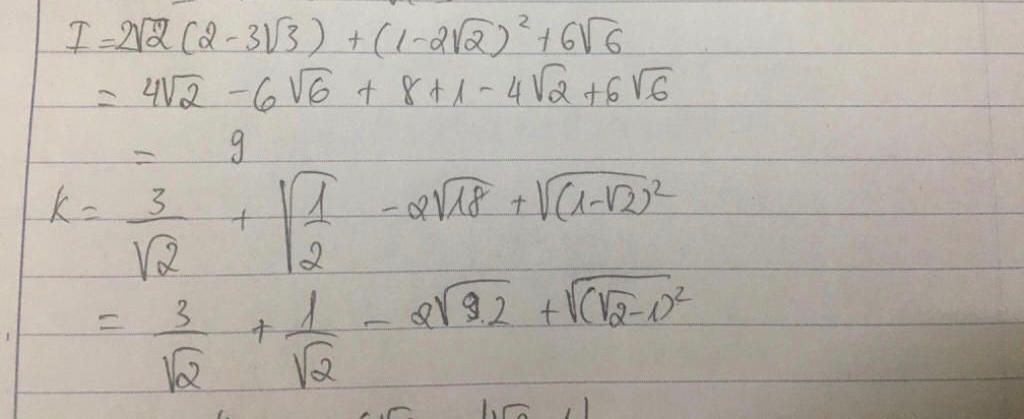 I = 2√2 (2 - 3√3) + (1 - 2√2)² + 6√6
= 4√2 - 6√6 + 8 + 1 - 4√2 + 6√6
= 9
K = 3/√2 + √(1/2) - 2√18 + √(1-√2)²
= 3/√2 + 1/√2 - 2√9.2 + √(√2-1)²